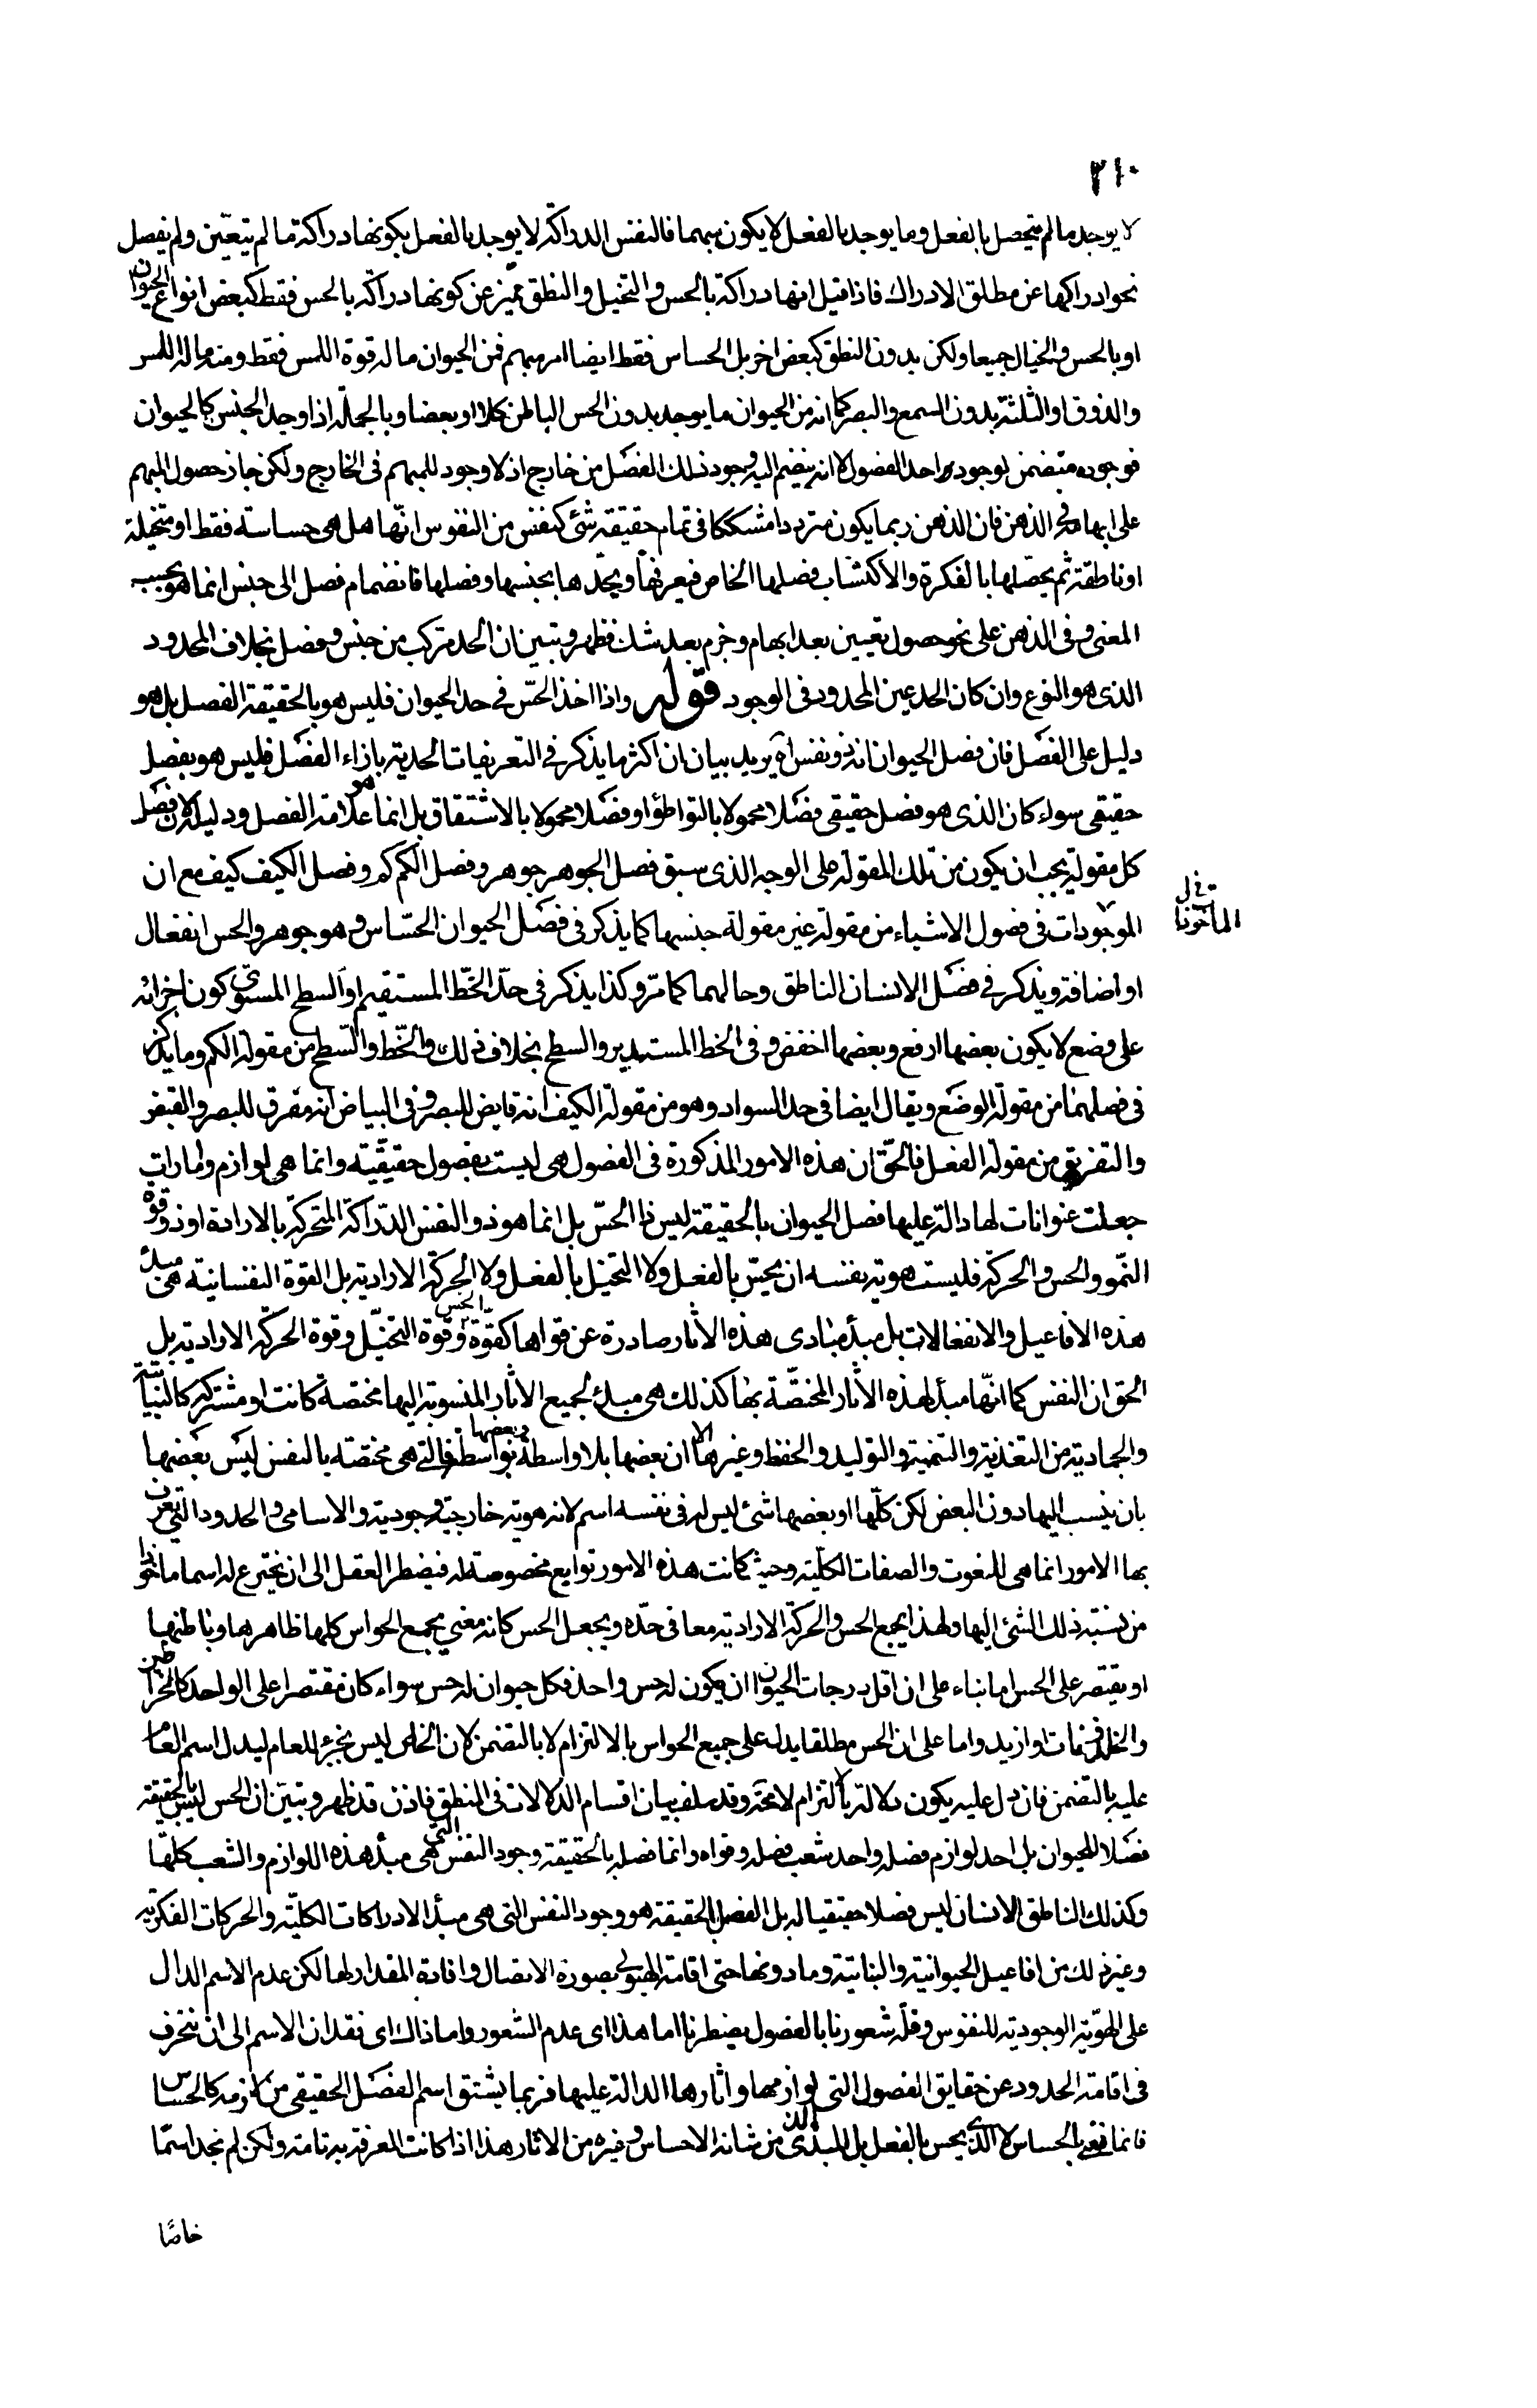 ٢١٠
لا يوجد ما لم يتحصل بالفعل وما يوجد بالفعل لا يكون مبهما فالنفس الدراكة لا يوجد بالفعل بكونها دراكة ما لم يتعين ولم يفصل
نحو ادراكها عن مطلق الادراك فاذا قيل انها دراكة بالحس والتخيل والنطق تميز عن كونها دراكة بالحس فقط كبعض انواع الحيوان
او بالحس والخيال جميعا ولكن بدون النطق كبعض اخر بل الحساس فقط ايضا امر مبهم فمن الحيوان ما له قوة اللمس فقط ومنه ما له اللمس
والذوق او الثلثة بدون السمع والبصر كما انه من الحيوان ما يوجد بدون الحس الباطن كلا او بعضا وبالجملة اذا وجد الجنس كالحيوان
فوجوده متضمن لوجود واحد الفصول لا انه ينضم اليه وجود ذلك الفصل من خارج اذ لا وجود للمبهم فى الخارج ولكن جاز حصول المبهم
على ابهامه فى الذهن فان الذهن ربما يكون مترددا متشككا فى تمام حقيقة شئ كنفس من النفوس انها هل هى حساسة فقط او متخيلة
او ناطقة ثم يحصلها بالفكرة والاكتساب فصلها الخاص فيعرفها ويحدها بجنسها وفصلها فانضمام فصل الى جنس انما هو بحسب
المعنى وفى الذهن على نحو حصول تعيين بعد ابهام وجزم بعد شك فظهر وتبين ان الحد مركب من جنس وفصل بخلاف المحدود
الذى هو النوع وان كان الحد عين المحدود فى الوجود قوله واذا اخذ الحس فى حد الحيوان فليس هو بالحقيقة الفصل بل هو
دليل على الفصل فان فصل الحيوان انه ذو نفس اه يريد بيان ان اكثر ما يذكر فى التعريفات الحدية بازاء الفصل فليس هو بفصل
حقيقى سواء كان الذى هو فصل حقيقى فصلا محمولا بالتواطؤ او فصلا محمولا بالاشتقاق بل انما هو علامة الفصل ودليله لان فصل
كل مقولة يجب ان يكون من تلك المقولة على الوجه الذى سبق فصل الجوهر جوهر وفصل الكم كم وفصل الكيف كيف مع ان
الموجودات فى فصول الاشياء من مقولة غير مقولة جنسها كما يذكر فى فصل الحيوان الحساس وهو جوهر والحس انفعال
المأخوذات
او اضافة ويذكر فى فصل الانسان الناطق وحالهما كما مر وكذا يذكر فى حد الخط المستقيم او السطح المستوى كون اجزائه
على وضع لا يكون بعضها ارفع وبعضها اخفض وفى الخط المستدير والسطح بخلاف ذلك والخط والسطح من مقولة الكم وما يذكر
فى فصلهما من مقولة الوضع ويقال ايضا فى حد السواد وهو من مقولة الكيف انه قابض للبصر وفى البياض انه مفرق للبصر والقبض
والتفريق من مقولة الفعل فالحق ان هذه الامور المذكورة فى الفصول هى ليست بفصول حقيقية وانما هى لوازم وامارات
جعلت عنوانات لها دالة عليها فصل الحيوان بالحقيقة ليس ذا الحس بل انما هو ذو النفس الدراكة المتحركة بالارادة او ذو قوة
النمو والحس والحركة فليست هوية نفسه ان يحس بالفعل ولا التخيل بالفعل ولا الحركة الارادية بل القوة النفسانية هى مبدأ
هذه الافاعيل والانفعالات بل مبدأ مبادى هذه الآثار صادرة عن قواها كقوة الحس وقوة التخيل وقوة الحركة الارادية بل
الحق ان النفس كما انها مبدأ لهذه الآثار المختصة بها كذلك هى مبدأ لجميع الآثار المنسوبة اليها مختصة كانت او مشتركة كالنباتية
والجمادية من التغذية والتنمية والتوليد والحفظ وغيرها الا ان بعضها بلا واسطة وبعضها بواسطة فالتى هى مختصة بالنفس ليس بعضها
بان ينسب اليها دون البعض لكن كلها او بعضها شئ ليس له فى نفسه اسم لانه هوية خارجية وجودية والاسامى والحدود التى تعرف
بها الامور انما هى للنعوت والصفات الكلية وحيث كانت هذه الامور توابع مخصوصة له فيضطر العقل الى ان يخترع له اسما ماخوذا
من نسبة ذلك الشئ اليها ولهذا يجمع الحس والحركة الارادية معا فى حده ويجعل الحس كانه معنى يجمع الحواس كلها ظاهرها وباطنها
او يقتصر على الحس اما بناء على ان اقل درجات الحيوان ان يكون له حس واحد فكل حيوان له حس سواء كان مقتصرا على الواحد كالخراطين
او ازيد واما على ان الحس مطلقا يدل على جميع الحواس بالالتزام لا بالتضمن لان الخاص ليس بجزء للعام ليدل اسم العام
عليه بالتضمن فان دل عليه يكون دلالة بالالتزام لا محة وقد سلف بيان اقسام الدلالات فى المنطق فاذن قد ظهر وتبين ان الحس ليس بالحقيقة
فصلا للحيوان بل احد لوازم فصله واحد شعب فصله وقواه وانما فصله بالحقيقة وجود النفس التى هى مبدأ هذه اللوازم والشعب كلها
وكذلك الناطق الانسان ليس فصلا حقيقيا له بل الفصل بالحقيقة هو وجود النفس التى هى مبدأ الادراكات الكلية والحركات الفكرية
وغير ذلك من افاعيل الحيوانية والنباتية وما دونها حتى اقامة الهيولى بصورة الاتصال وافادة المقدار لها لكن عدم الاسم الدال
على الهوية الوجودية للنفوس وقلة شعورنا بالفصول يضطرنا اما هذا اى عدم الشعور واما ذاك اى فقدان الاسم الى ان ننحرف
فى اقامة الحدود عن حقايق الفصول التى لوازمها وآثارها الدالة عليها فربما يشتق اسم الفصل الحقيقى من لازمه كالحساس
فانما نعنى بالحساس لا الذى يحس بالفعل بل المبدأ الذى من شانه الاحساس وغيره من الاثار هذا اذا كانت المعرفة به تامة ولكن لم نجد اسما
خاصا